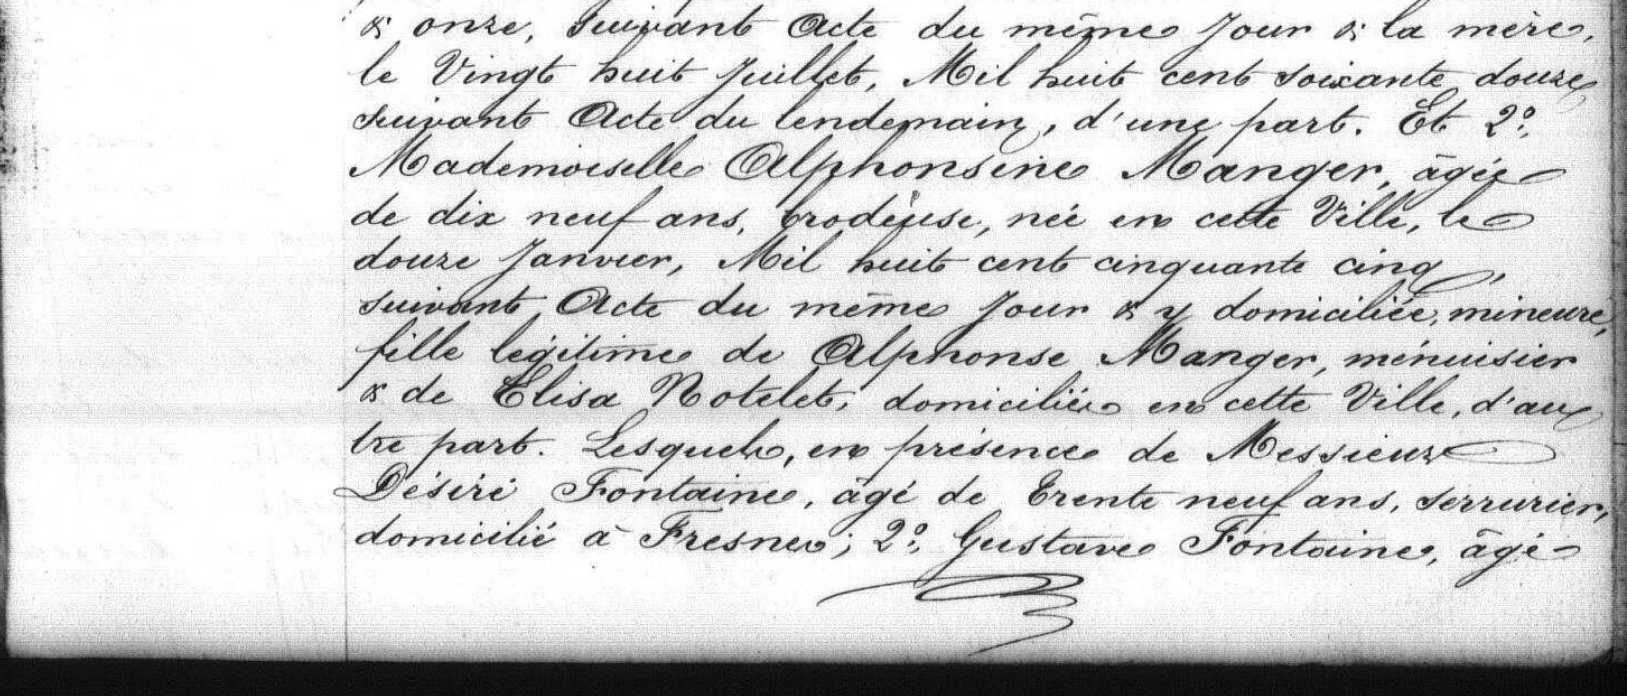 & onze, suivant Acte du même Jour & la mère,
le Vingt huit Juillet, Mil huit cent soixante douze
suivant Acte du lendemain, d'une part. Et 2º,
Mademoiselle Alphonsine Manger, âgée
de dix neuf ans, brodeuse, née en cette Ville, le
douze Janvier, Mil huit cent cinquante cinq,
suivant Acte du même Jour & y domiciliée, mineure,
fille légitime de Alphonse Manger, ménuisier
& de Elisa Notelet, domiciliés en cette Ville, d'au
tre part. Lesquels, en présence de Messieurs
Désiré Fontaine, âgé de trente neuf ans, serrurier,
domicilié à Fresnes; 2º, Gustave Fontaine, âgé